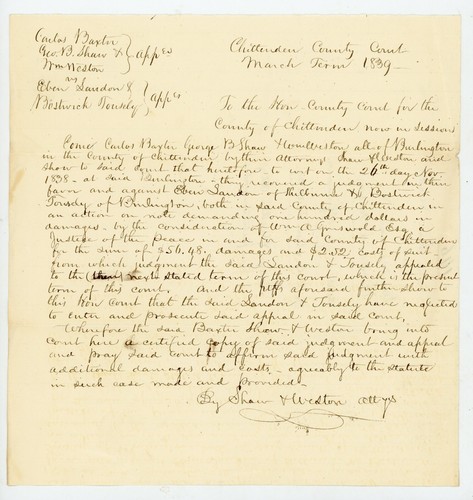 Carlos Baxter
Geo. B. Shaw & } appees
Wm Weston
vs
Eben Sandon &
Bostwick Tousely } appes
Chittenden County Court
March Term 1839
To the Hon County Court for the
County of Chittenden now in Session
Come Carlos Baxter George B Shaw & Wm Weston all of Burlington
in the County of Chittenden by their Attorneys Shaw & Weston and
show to said Court that heretofore to wit on the 26th day Nov.
1838 at said Burlington they recovered a judgment in their
favor and against Eben Sandon of Hilburn & Bostwick
Tousley of Burlington, both in said County of Chittenden in
an action on note demanding one hundred dollars in
damages by the consideration of Wm A Griswold Esq a
Justice of the Peace in and for said County of Chittenden
for the sum of $56.48, damages and $2.32 costs of suit
from which judgment the said Sandon & Tousely appealed
to the next stated term of this court, which is the present
term of this court. And the plffs aforesaid further show to
this Hon Court that the said Sandon & Tousely have neglected
to enter and prosecute said appeal in said Court,
Wherefore the said Baxter Shaw & Weston bring into
Court here a certified copy of said judgment and appeal
and pray said court to affirm said judgment with
additional damages and costs - agreeably to the statute
in such case made and provided -
By Shaw & Weston attys